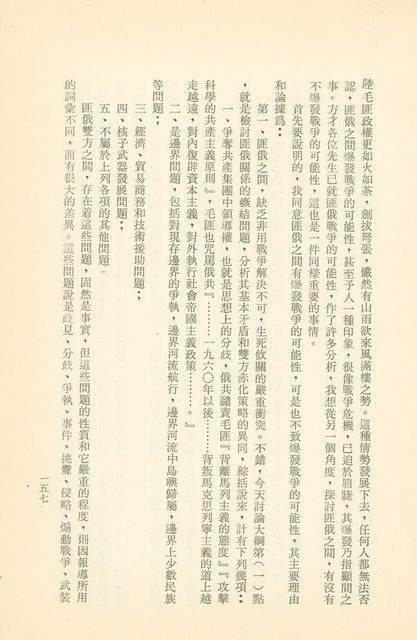 陸毛匪政權更如火如荼，劍拔弩張，儼然有山雨欲來風滿樓之勢。這種情勢發展下去，任何人都無法否
認，匪俄之間爆發戰爭的可能性，甚至予人一種印象，很像戰爭危機，已迫於眉睫，其爆發乃指顧間之
事。方才各位先生已就匪俄戰爭的可能性，作了許多分析，我想從另一個角度，探討匪俄之間，有沒有
不爆發戰爭的可能性，這也是一件同樣重要的事情。
首先要說明的，我同意匪俄之間有爆發戰爭的可能性，可是也不致爆發戰爭的可能性，其主要理由
和論據爲：
第一、匪俄之間，缺乏非用戰爭解決不可，生死攸關的嚴重衝突。不錯，今天討論大綱第（一）點
，就是檢討匪俄關係的癥結問題，分析其基本矛盾和雙方赤化策略的異同，綜括說來，計有下列幾項：
一、爭奪共產集團中領導權，也就是思想上的分歧，俄共譴責毛匪『背離馬列主義的態度』『攻擊
科學的共產主義原則』，毛匪也咒罵俄共『………一九六〇年以後………背叛馬克思列寧主義的道上越
走越遠，對內復辟資本主義，對外執行社會帝國主義政策……。』
二、是邊界問題，包括對現存邊界的爭執，邊界河流航行，邊界河流中島嶼歸屬，邊界上少數民族
等問題；
三、經濟、貿易商務和技術援助問題；
四、核子武器發展問題；
五、不屬於上列各項的其他問題。
匪俄雙方之間，存在着這些問題，固然是事實，但這些問題的性質和它嚴重的程度，則因報導所用
的詞彙不同，而有很大的差異。這些問題說是歧見、分歧、爭執、事件、挑釁、侵略、煽動戰爭、武裝
一五七